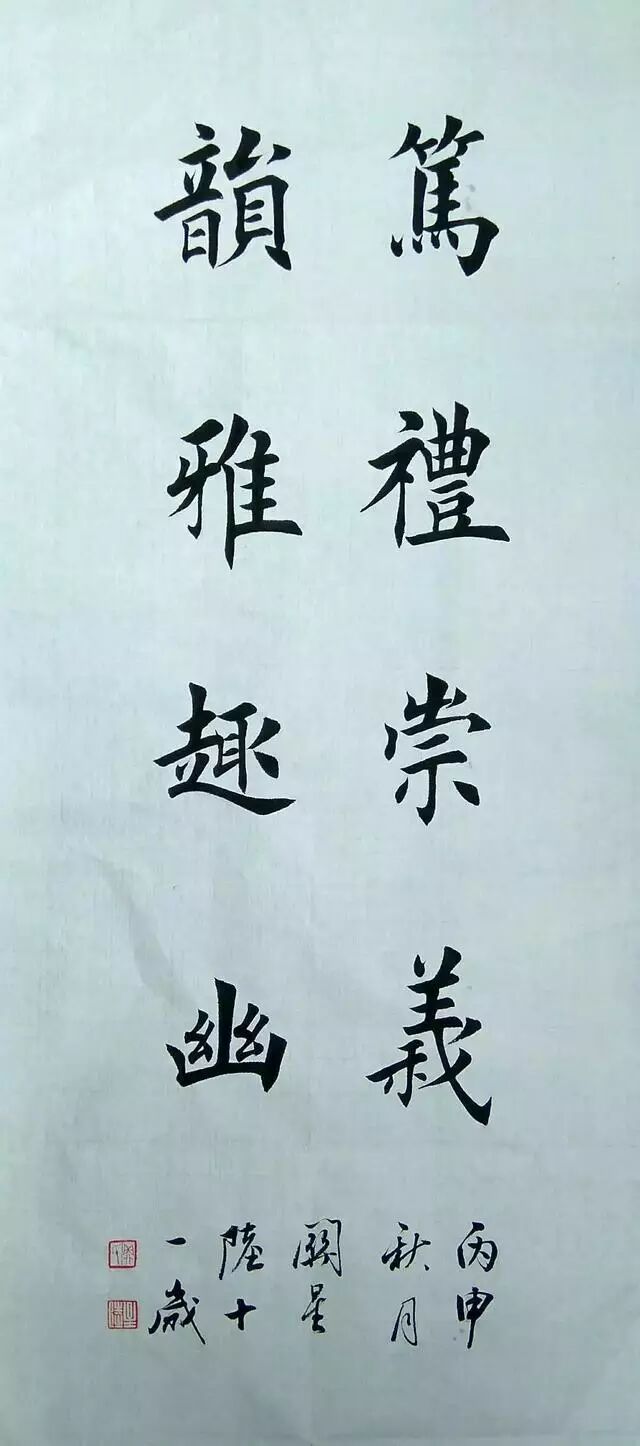 篤禮崇義
韻雅趣幽
丙申
秋月
關星
陸十
一歲